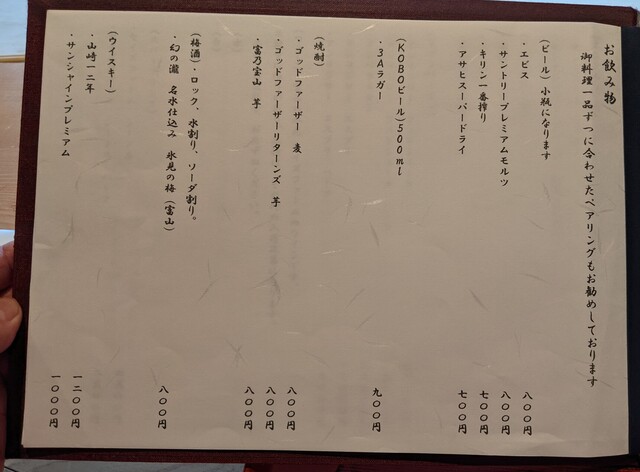 お飲み物
御料理一品ずつに合わせたペアリングもお勧めしております
(ビール)小瓶になります
・エビス 八〇〇円
・サントリープレミアムモルツ 八〇〇円
・キリン一番搾り 七〇〇円
・アサヒスーパードライ 七〇〇円
(KOBOビール)500ml
・3Aラガー 九〇〇円
(焼酎)
・ゴッドファーザー 麦 八〇〇円
・ゴッドファーザーリターンズ 芋 八〇〇円
・富乃宝山 芋 八〇〇円
(梅酒)・ロック、水割り、ソーダ割り。
・幻の瀧 名水仕込み 氷見の梅(富山) 八〇〇円
(ウイスキー)
・山崎一二年 一二〇〇円
・サンシャインプレミアム 一〇〇〇円